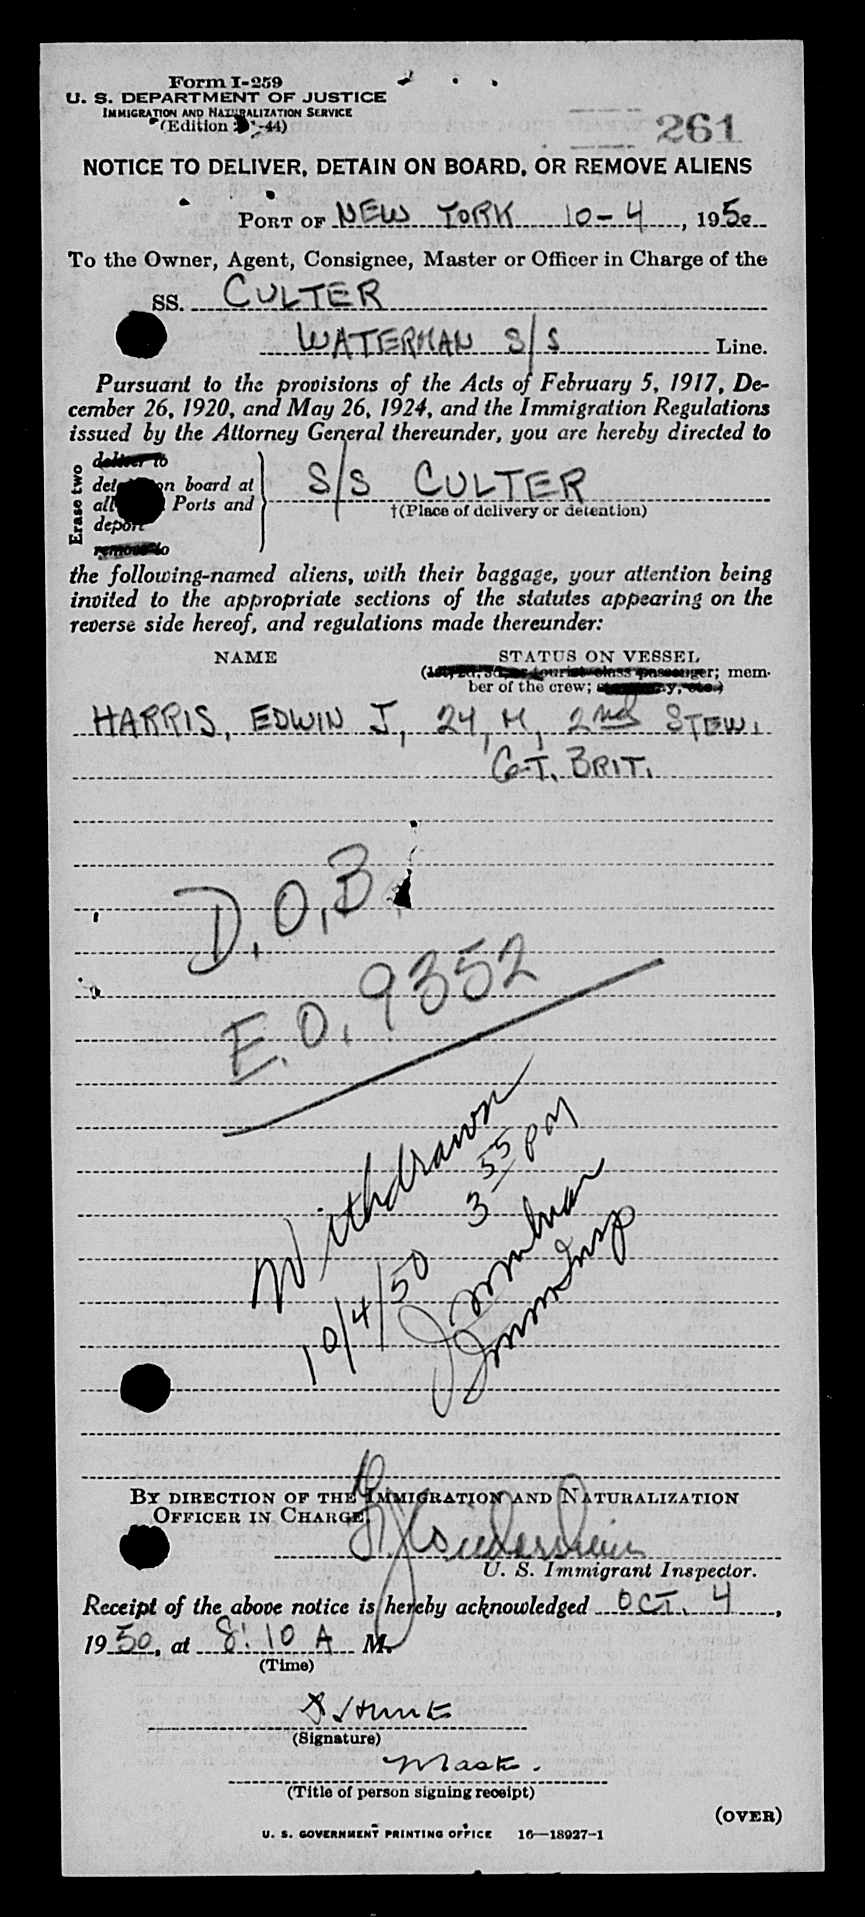 Form I-259
U. S. DEPARTMENT OF JUSTICE
IMMIGRATION AND NATURALIZATION SERVICE
(Edition -44)
261
NOTICE TO DELIVER, DETAIN ON BOARD, OR REMOVE ALIENS
PORT OF NEW YORK 10-4, 1950
To the Owner, Agent, Consignee, Master or Officer in Charge of the
SS. CULTER
WATERMAN S/S Line.
Pursuant to the provisions of the Acts of February 5, 1917, De-
cember 26, 1920, and May 26, 1924, and the Immigration Regulations
issued by the Attorney General thereunder, you are hereby directed to
Erase two
deliver to
detain on board at
all Ports and
deport
remove to
S/S CULTER
†(Place of delivery or detention)
the following-named aliens, with their baggage, your attention being
invited to the appropriate sections of the statutes appearing on the
reverse side hereof, and regulations made thereunder:
NAME STATUS ON VESSEL
(1st, 2d, 3d, or tourist class passenger; mem-
ber of the crew;
HARRIS, EDWIN J, 24, M, 2nd STEW.
GT. BRIT.
D.O.B.
E.O. 9352
Withdrawn
10/4/50 3 55 PM
Imm Insp
BY DIRECTION OF THE IMMIGRATION AND NATURALIZATION
OFFICER IN CHARGE,
U. S. Immigrant Inspector.
Receipt of the above notice is hereby acknowledged OCT. 4,
1950, at 8:10 A M.
(Time)
(Signature)
Master.
(Title of person signing receipt)
(OVER)
U. S. GOVERNMENT PRINTING OFFICE 16—18927-1